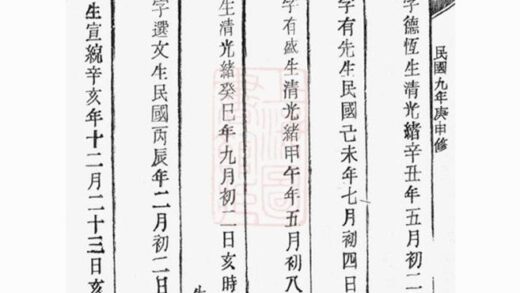 民國九年庚申修
字德恆生清光緒辛丑年五月初二
字有先生民國己未年七月初四日
字有盛生清光緒甲午年五月初八
生清光緒癸巳年九月初二日亥時
字選文生民國丙辰年二月初二日
生宣統辛亥年十二月二十三日亥